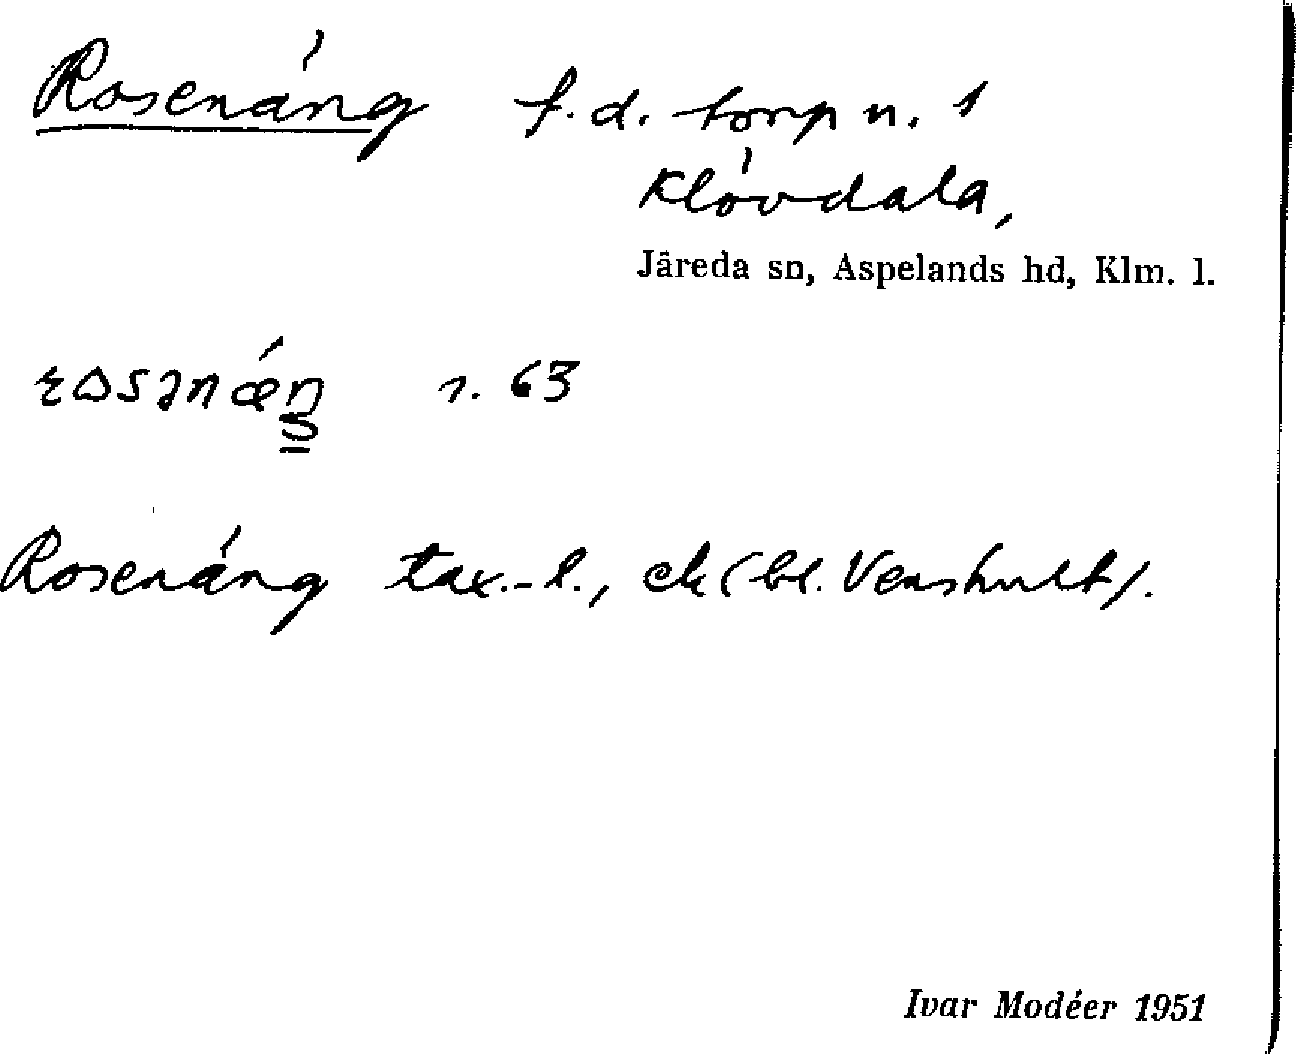 Rosenäng f.d. torp u. 1
Klövdala,
Järeda sn, Aspelands hd, Klm. l.
rosənǽŋ r. 63
Rosenäng tax.-l., ek (bl. Venshult).
Ivar Modéer 1951